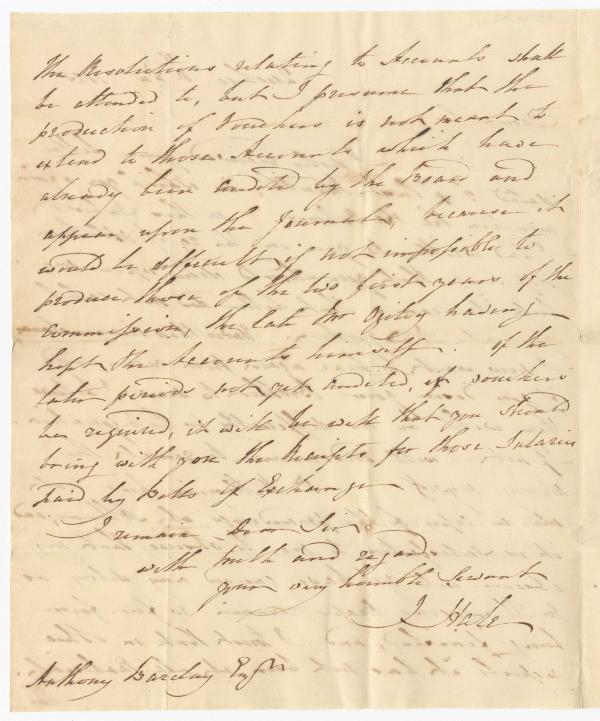 The Resolutions relating to Accounts shall
be attended to, but I presume that the
production of Vouchers is not meant to
extend to those Accounts which have
already been audited by the Board and
appear upon the Journals, because it
would be difficult if not impossible to
produce those of the two first years of the
commission, the late Mr Ogilvy having
kept the Accounts himself. Of the
later periods not yet audited, if vouchers
be required, it will be well that you should
bring with you the Receipts for those Salaries
paid by Bills of Exchange
I remain Dear Sir
with truth and regard
your very humble Servant
J Hale
Anthony Barclay Esqr